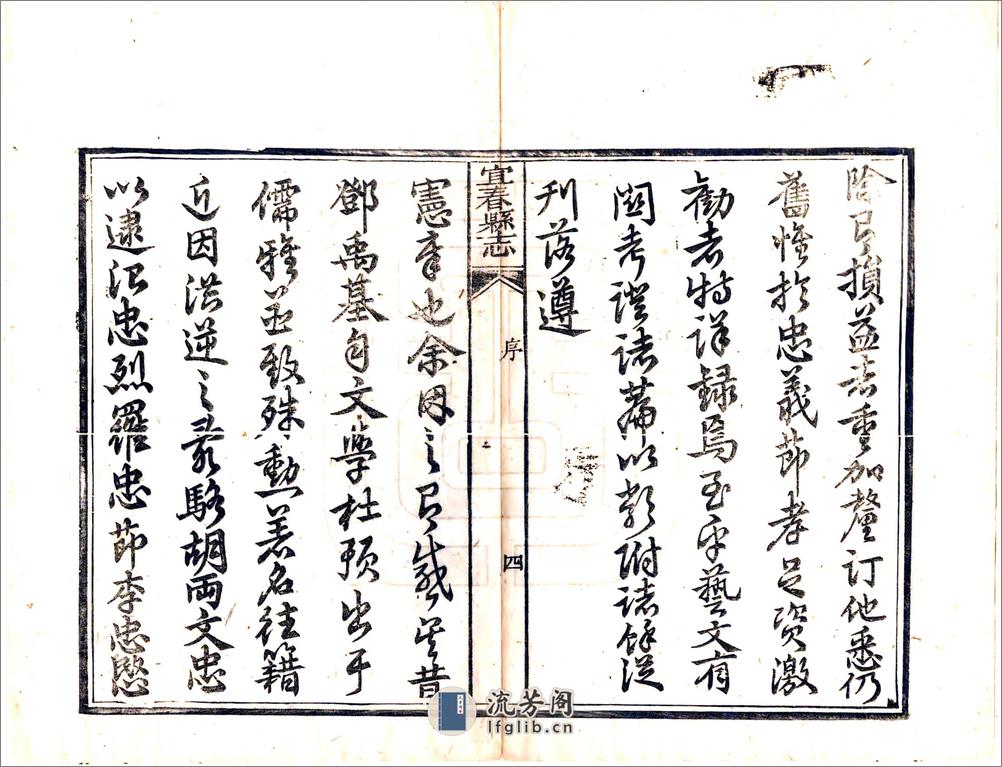 除有損益者重加釐訂他悉仍
舊惟於忠義節孝足資激
勸者特詳錄焉至乎藝文有
關考證諸篇以類附諸餘從
刊落遵
宜春縣志
序
四
憲章也余因之有感矣昔
鄧禹基自文學杜預出于
儒雅並致殊勳著名往籍
近因洪逆之亂駱胡兩文忠
以逮江忠烈羅忠節李忠愍
流芳阁
lfglib.cn